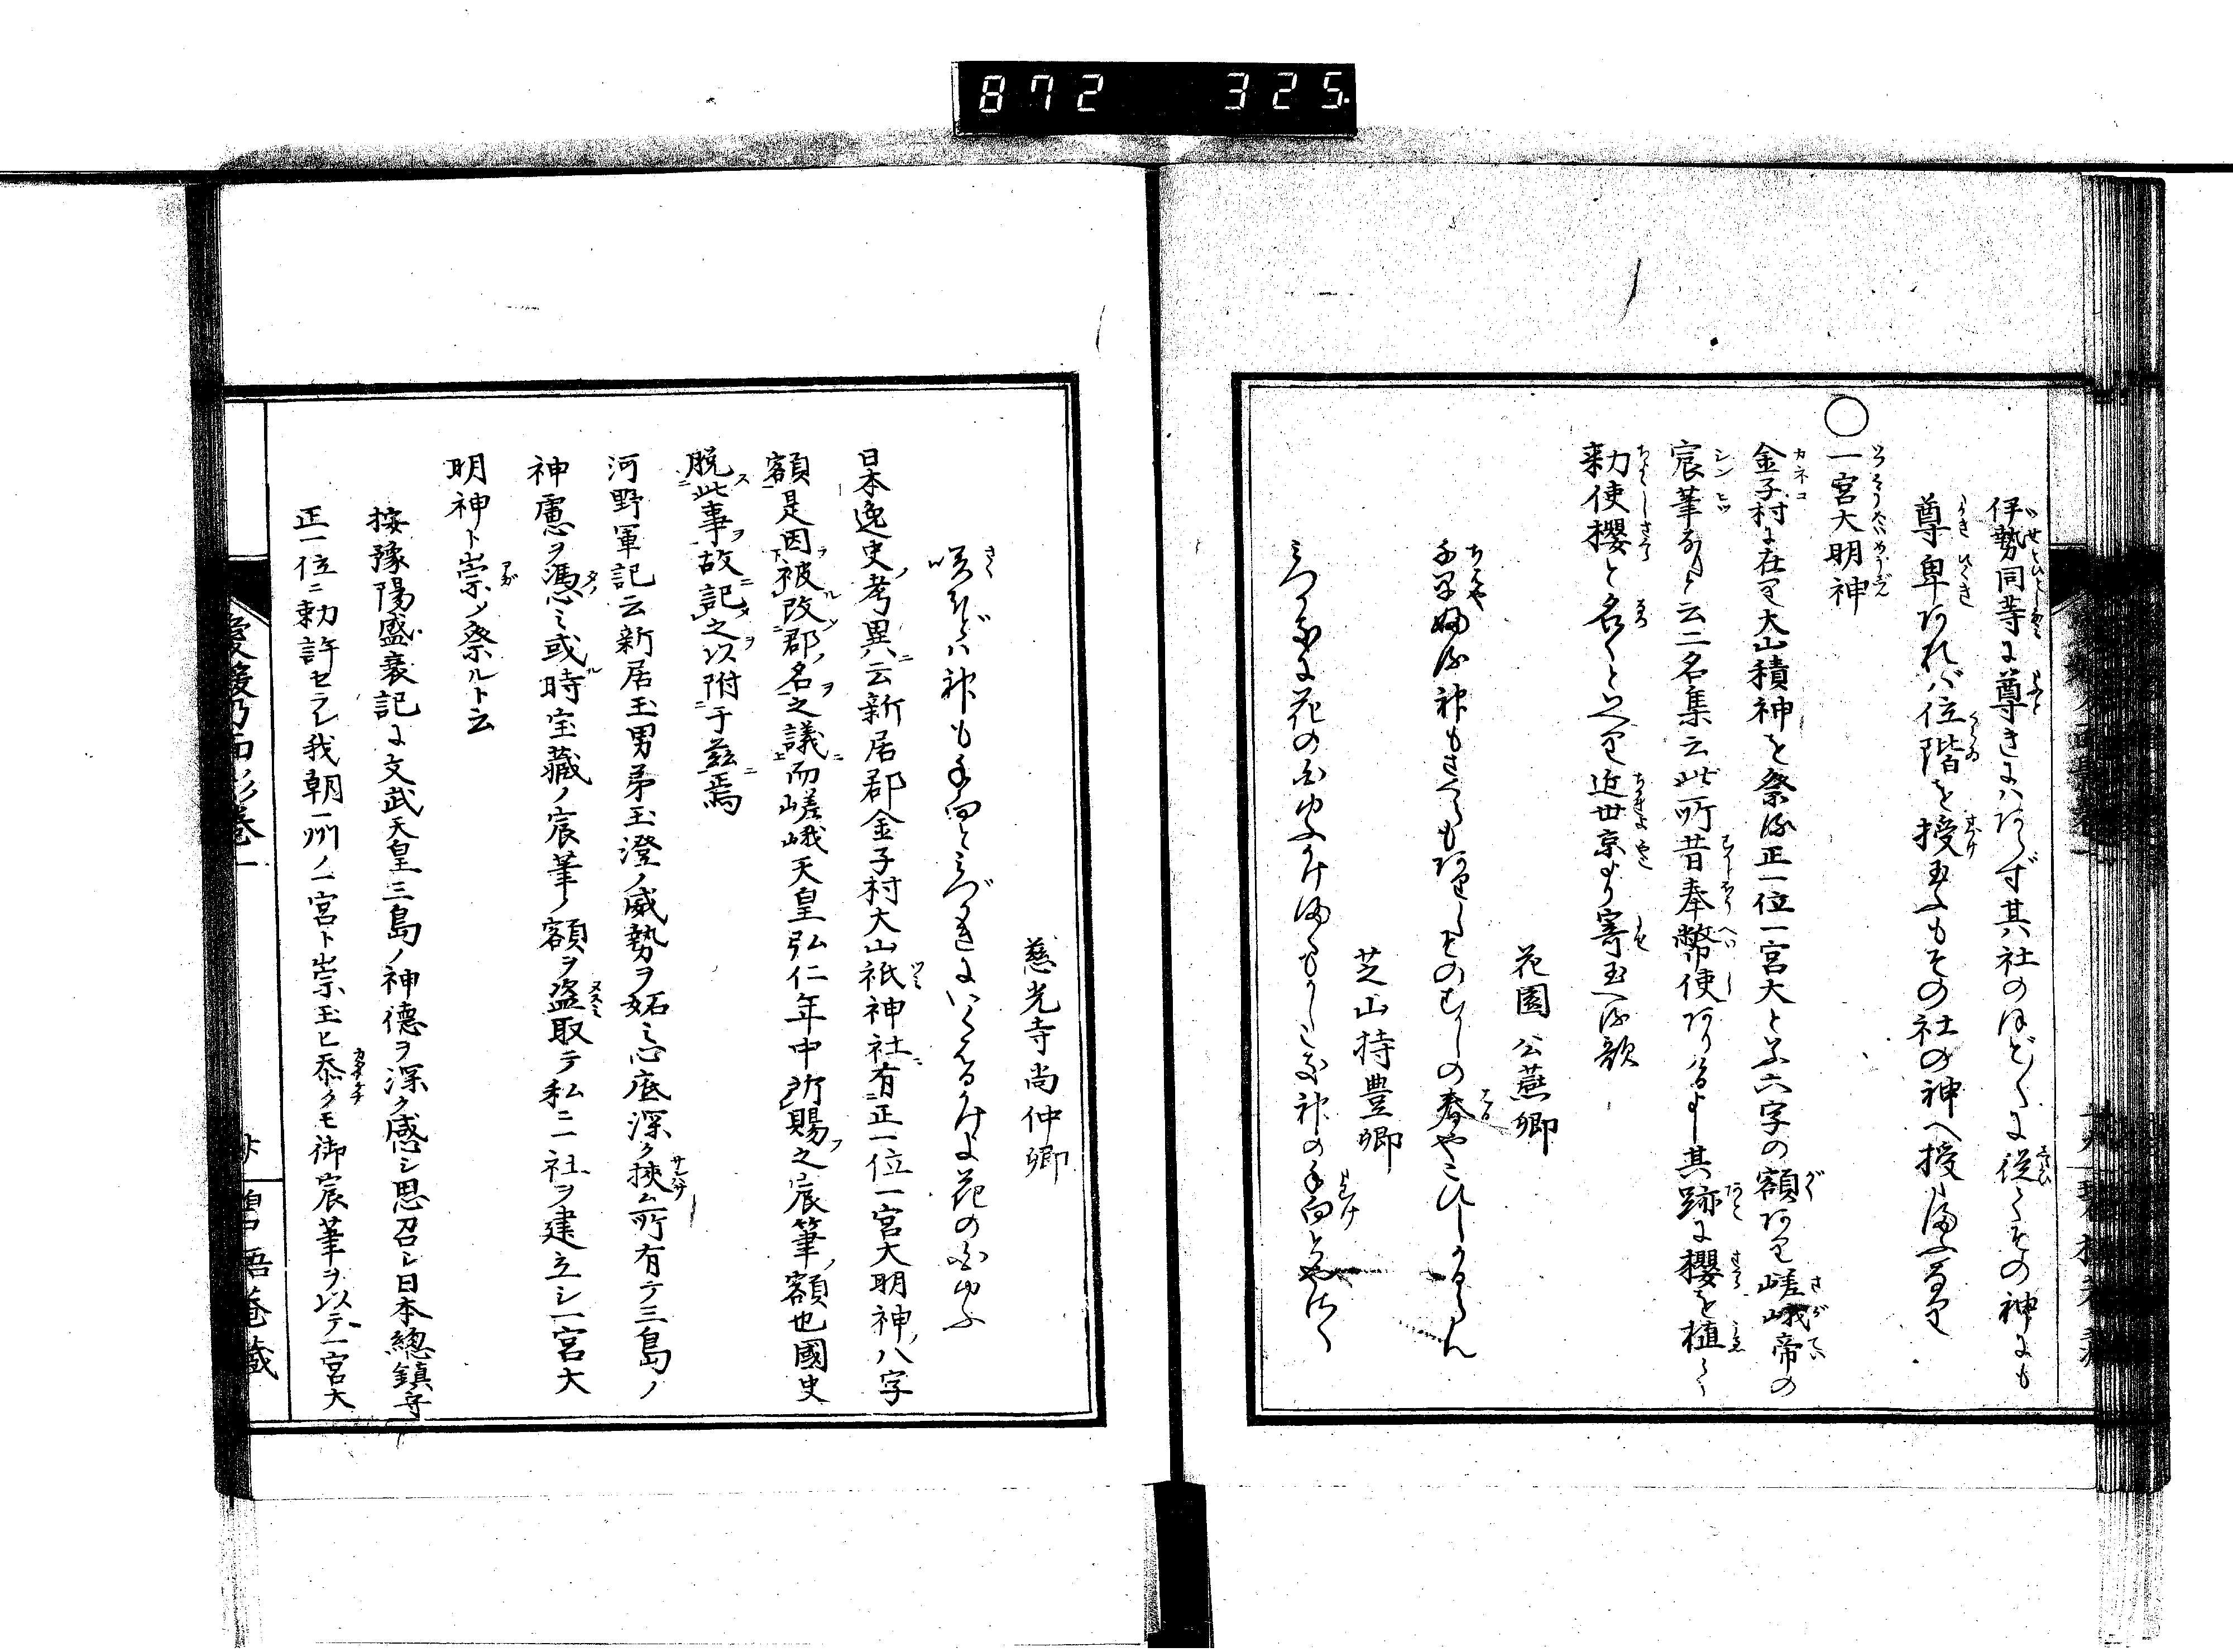 872 325.
伊勢同等に尊きにハあらず其社のほど〳〵に従ひその神にも
尊卑あれバ位階を授玉ふもその社の神へ授け給ふなり
〇一宮大明神
金子村に在り大山積神を祭る正一位一宮大と云六字の額あり嵯峨帝の
宸筆なりと云二名集云此所昔奉幣使ありけるよし其跡に櫻を植て
勅使櫻と名くといへり近世京より寄玉へる歌
花園公燕卿
ちはやぶる神もさくらもありし其のむかしの春やこひしかるらん
芝山持豊卿
神の手向と
慈光寺尚仲卿
咲そめバ神も手向とみづがきに
花の白ゆふ
日本逸史考異ニ云新居郡金子村大山祇神社ニ有正一位一宮大明神ノ八字
額是因被改郡名之議而嵯峨天皇弘仁年中所賜之宸筆ノ額也國史
脱此事故記之以附于茲焉
河野軍記云新居玉男弟玉澄ノ威勢ヲ妬ミ心底深ク挾ム所有テ三島ノ
神慮ヲ憑ミ或時宝藏ノ宸筆ノ額ヲ盗取テ私ニ一社ヲ建立シ一宮大
明神ト崇メ祭ルト云
按豫陽盛衰記に文武天皇三島ノ神德ヲ深ク感シ思召シ日本總鎮守
正一位ニ勅許セラレ我朝一州ノ一宮ト崇玉ヒ忝クモ御宸筆ヲ以テ一宮大
愛媛乃面影巻一
碧梧菴藏